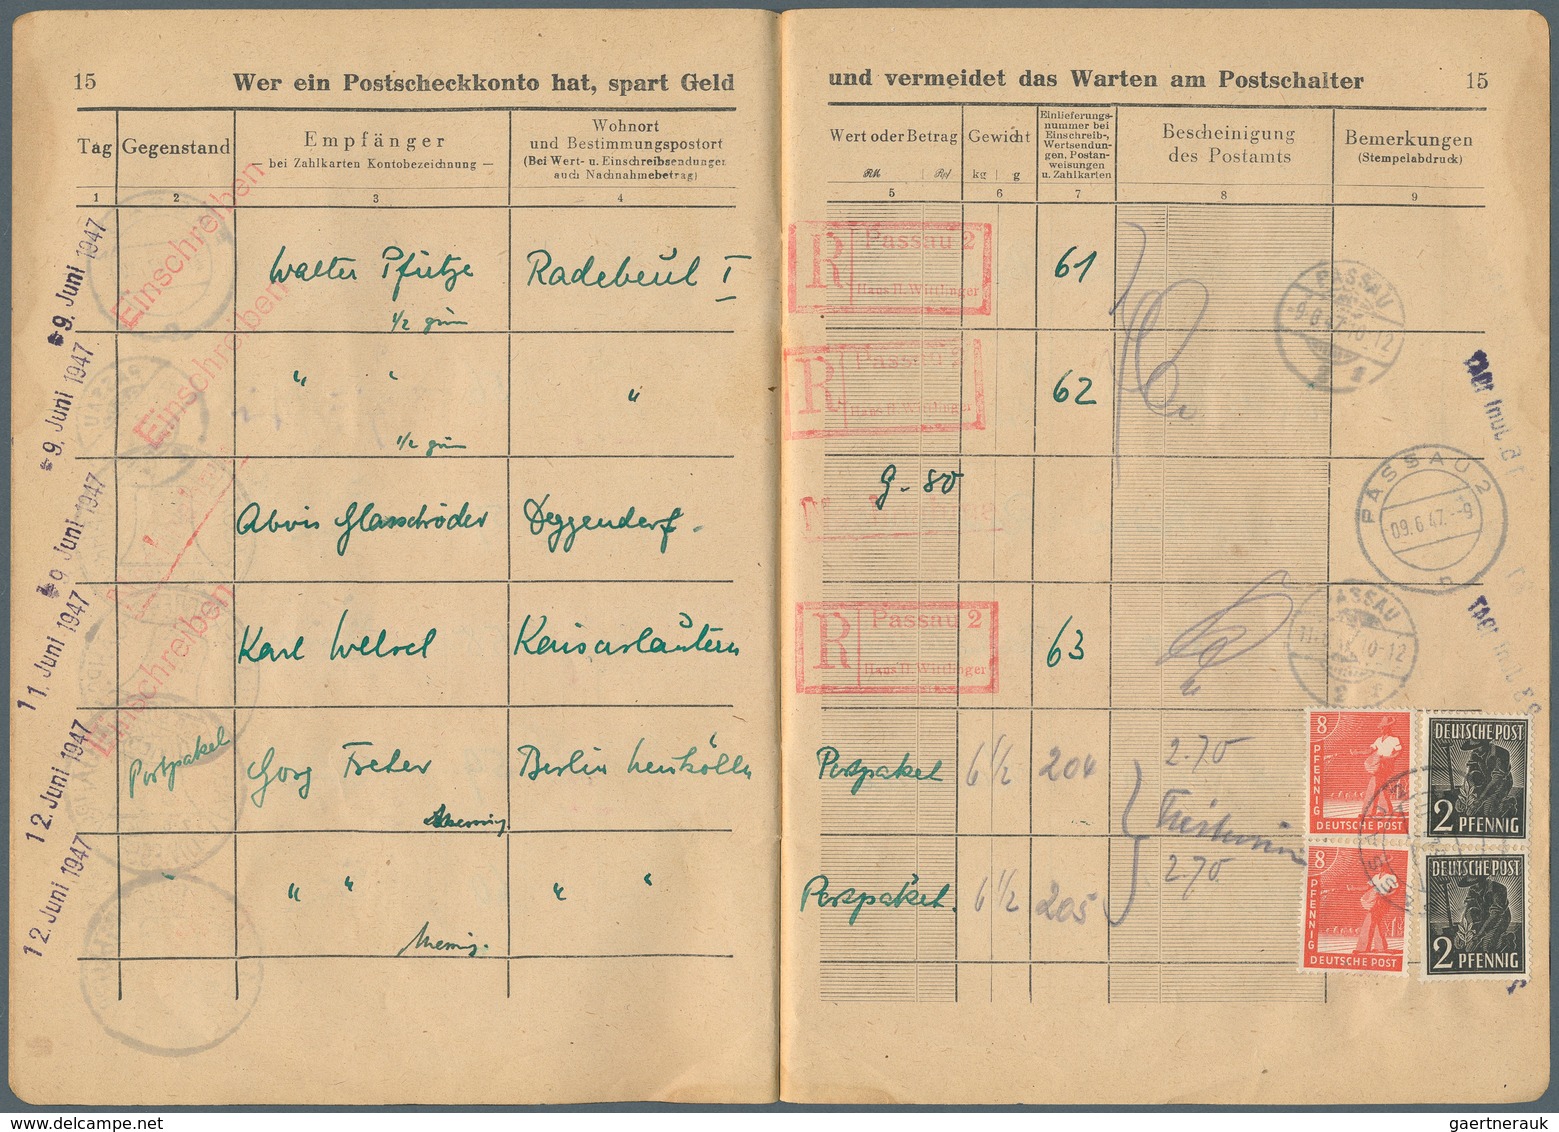 15 Wer ein Postscheckkonto hat, spart Geld und vermeidet das Warten am Postschalter 15
Tag
Gegenstand
Empfänger
— bei Zahlkarten Kontobezeichnung —
Wohnort
und Bestimmungspostort
(Bei Wert- u. Einschreibsendungen
auch Nachnahmebetrag)
Wert oder Betrag
RM Rpf
Gewicht
kg g
Einlieferungs-
nummer bei
Einschreib-,
Wertsendun-
gen, Postan-
weisungen
u. Zahlkarten
Bescheinigung
des Postamts
Bemerkungen
(Stempelabdruck)
1 2 3 4 5 6 7 8 9
9. Juni 1947
Einschreiben
Walter Pfütze
1/2 grün
Radebeul I
R Passau 2
Hans H. Wittlinger
61
PASSAU
-9.6.47.10-12
9. Juni 1947
Einschreiben
" "
1/2 grün
"
R Passau 2
Hans H. Wittlinger
62
9. Juni 1947
Alois Glasschröder
Deggendorf.
9.-80
PASSAU 2
09.6.47.--9
11. Juni 1947
Einschreiben
Karl Welsch
Kaiserslautern
R Passau 2
Hans H. Wittlinger
63
PASSAU
12. Juni 1947
Postpaket
Berlin Neukölln
Postpaket
6 1/2
204
2.70
8 PFENNIG
DEUTSCHE POST
DEUTSCHE POST
2 PFENNIG
12. Juni 1947
"
" "
" "
Postpaket.
6 1/2
205
2.70
8 PFENNIG
DEUTSCHE POST
DEUTSCHE POST
2 PFENNIG
gaertnerauk